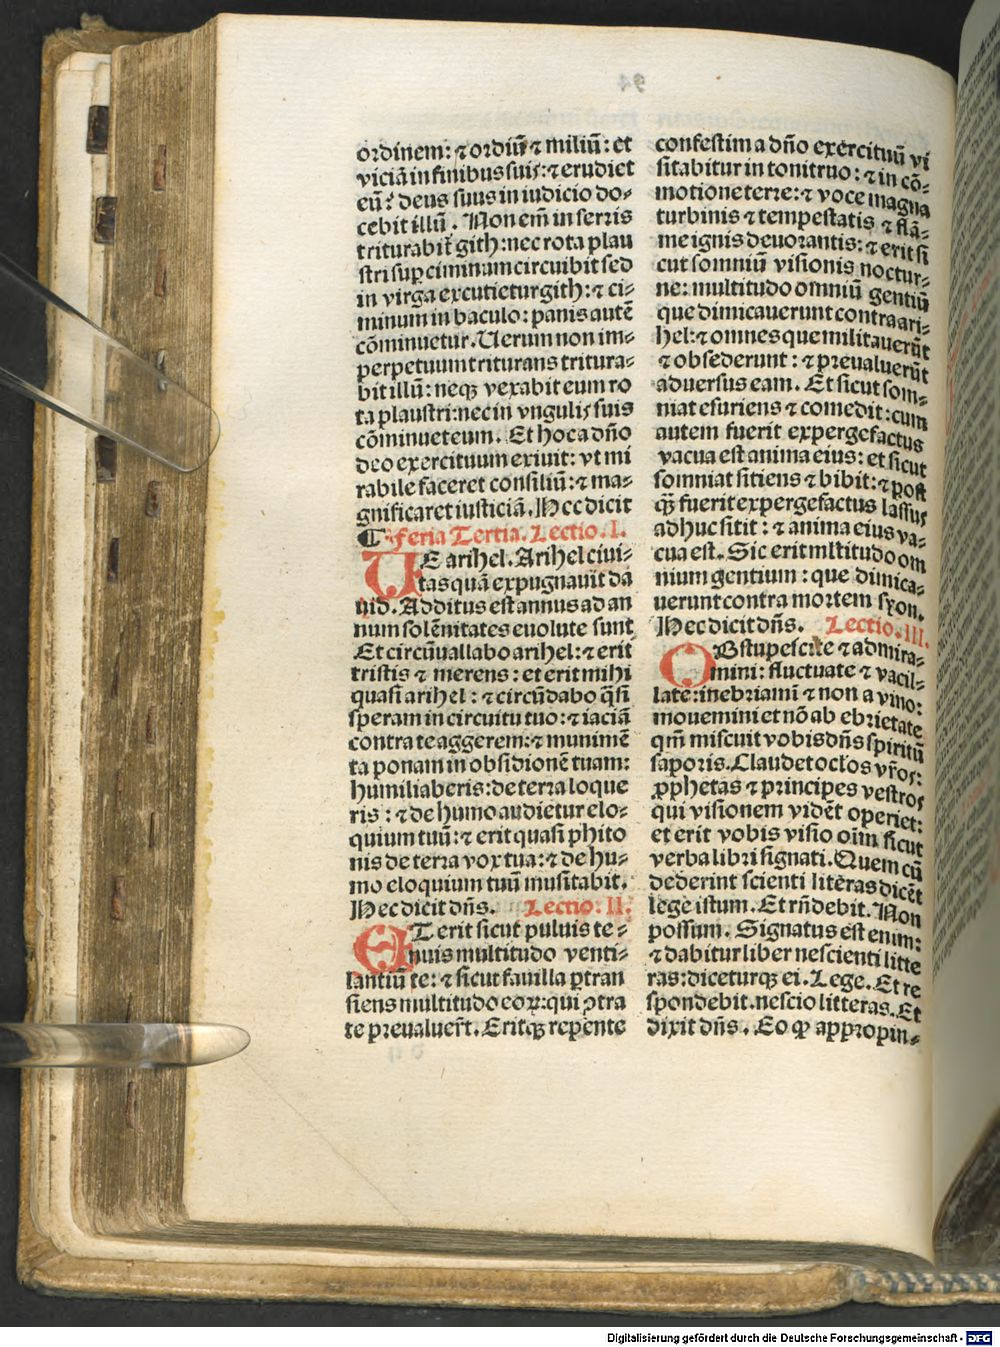 ordinem: ⁊ ordiū ⁊ miliū: et
viciā in finibus suis: ⁊ erudiet
eū: deus suus in iudicio do-
cebit illū. Non em̄ in serris
triturabit̄ gith: nec rota plau
stri sup̱ ciminum circuibit sed
in virga excutietur gith: ⁊ ci-
minum in baculo: panis autē
cōminuetur. Uerum non im-
perpetuum triturans tritura-
bit illū: neqꝫ vexabit eum ro
ta plaustri: nec in vngulis suis
cōminuet eum. Et hoc a dn̄o
deo exercituum exiuit: vt mi
rabile faceret consiliū: ⁊ ma-
gnificaret iusticiā. Hec dicit
¶ Feria Tertia. Lectio. I.
UE arihel. Arihel ciui-
tas quā expugnauit da
uid. Additus est annus ad an
num solēnitates euolute sunt
Et circūuallabo arihel: ⁊ erit
tristis ⁊ merens: et erit mihi
quasi arihel: ⁊ circūdabo q̄si
speram in circuitu tuo: ⁊ iaciā
contra te aggerem: ⁊ munimē
ta ponam in obsidionē tuam:
humiliaberis: de terra loque
ris: ⁊ de humo audietur elo-
quium tuū: ⁊ erit quasi phito
nis de terra vox tua: ⁊ de hu-
mo eloquium tuū musitabit.
Hec dicit dn̄s. Lectio. II.
ET erit sicut puluis te-
nuis multitudo venti-
lantiū te: ⁊ sicut fauilla ꝑtran
siens multitudo eoꝝ: qui ꝯtra
te preualuer̄t. Eritqꝫ repente
confestim a dn̄o exercituū vi
sitabitur in tonitruo: ⁊ in cō-
motione terre: ⁊ voce magna
turbinis ⁊ tempestatis ⁊ flā-
me ignis deuorantis: ⁊ erit si
cut somniū visionis noctur-
ne: multitudo omniū gentiū
que dimicauerunt contra ari-
hel: ⁊ omnes que militauerūt
⁊ obsederunt: ⁊ preualuerūt
aduersus eam. Et sicut som-
niat esuriens ⁊ comedit: cum
autem fuerit expergefactus
vacua est anima eius: et sicut
somniat sitiens ⁊ bibit: ⁊ post
qꝫ fuerit expergefactus lassus
adhuc sitit: ⁊ anima eius va-
cua est. Sic erit mltitudo om
nium gentium: que dimica-
uerunt contra mortem syon.
Hec dicit dn̄s. Lectio. III.
OBstupescite ⁊ admira-
mini: fluctuate ⁊ vacil-
late: inebriamī ⁊ non a vino:
mouemini et nō ab ebrietate
qm̄ miscuit vobis dn̄s spiritū
saporis. Claudet oc̄los vr̄os:
ꝓphetas ⁊ principes vestros
qui visionem vidēt operiet:
et erit vobis visio oīm sicut
verba libri signati. Quem cū
dederint scienti literas dicēt
lege istum. Et rn̄debit. Non
possum. Signatus est enim:
⁊ dabitur liber nescienti litte
ras: diceturqꝫ ei. Lege. Et re
spondebit. nescio litteras. Et
dixit dn̄s. Eo ꝙ appropin-
Digitalisierung gefördert durch die Deutsche Forschungsgemeinschaft - DFG